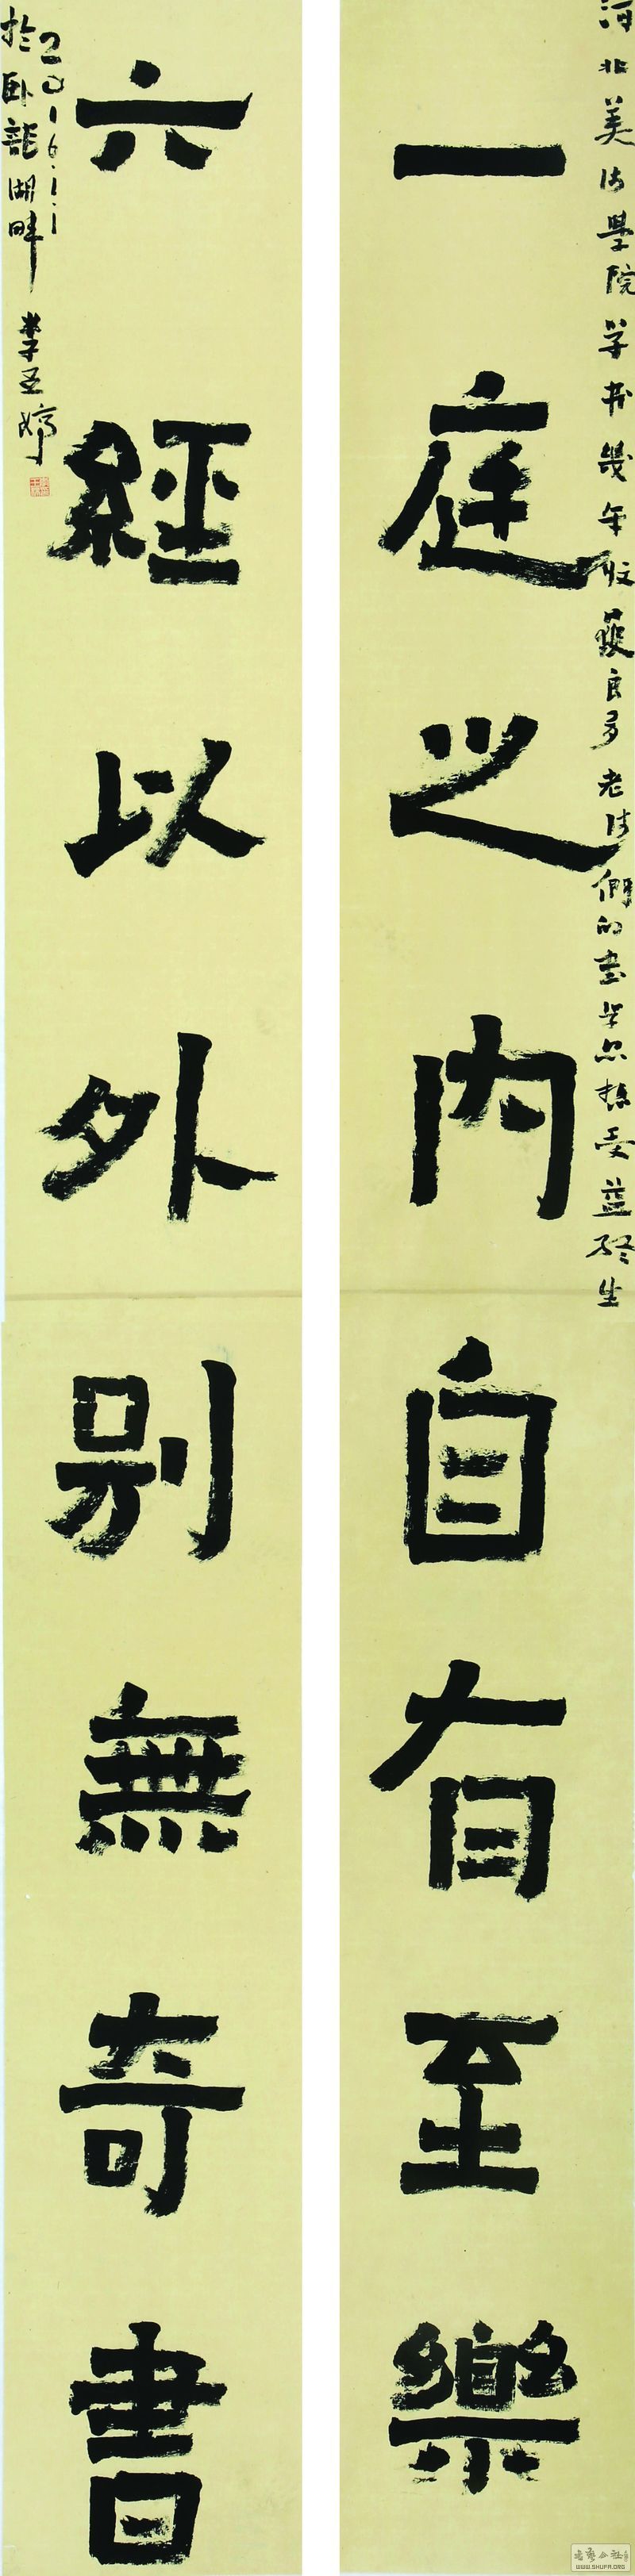 河北美術學院學書幾年收獲良多老師們的書學思想受益終生
一庭之內自有至樂
六經以外別無奇書
2016.1.1
於卧龍湖畔 李亞婷
WWW.SHUFA.ORG